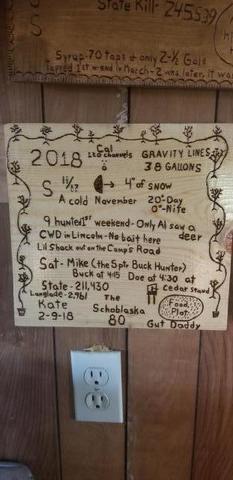 State Kill- 245,539
S
Syrup-70 taps + only 2-½ Gals
Tapped 1st week end in March-2 wks later, it was
2018
Cal
LTO channels
GRAVITY LINES
38 GALLONS
S 11/17 → 4" of SNOW
A cold November 20°-Day
0°-Nite
9 hunted 1st weekend- Only Al saw a deer
CWD in Lincoln- No bait here
Lil Shack out on the Camp's Road
Sat- Mike (the 5pt Buck Hunter)
Buck at 4:15 Doe at 4:30 at
cedar stand
State-211,430
Langlade-2,961
Kate
2-9-18
The
Schoblaska
80
Food
Plot
Gut Daddy